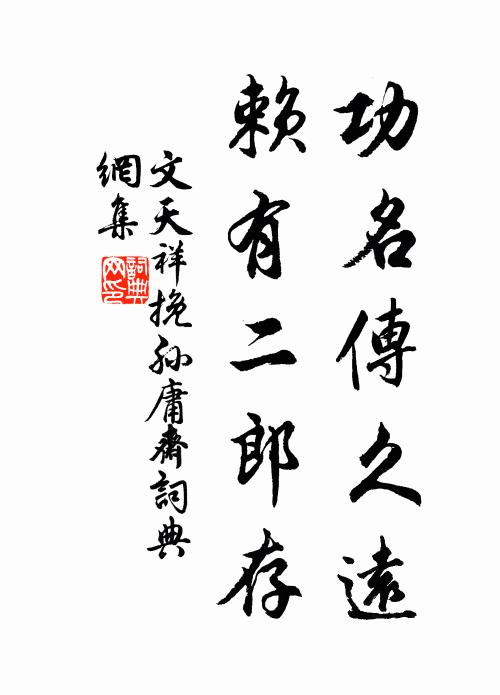 功名傳久遠
賴有二郎存
文天祥挽孫庸齋詞典
網集
詞典網印